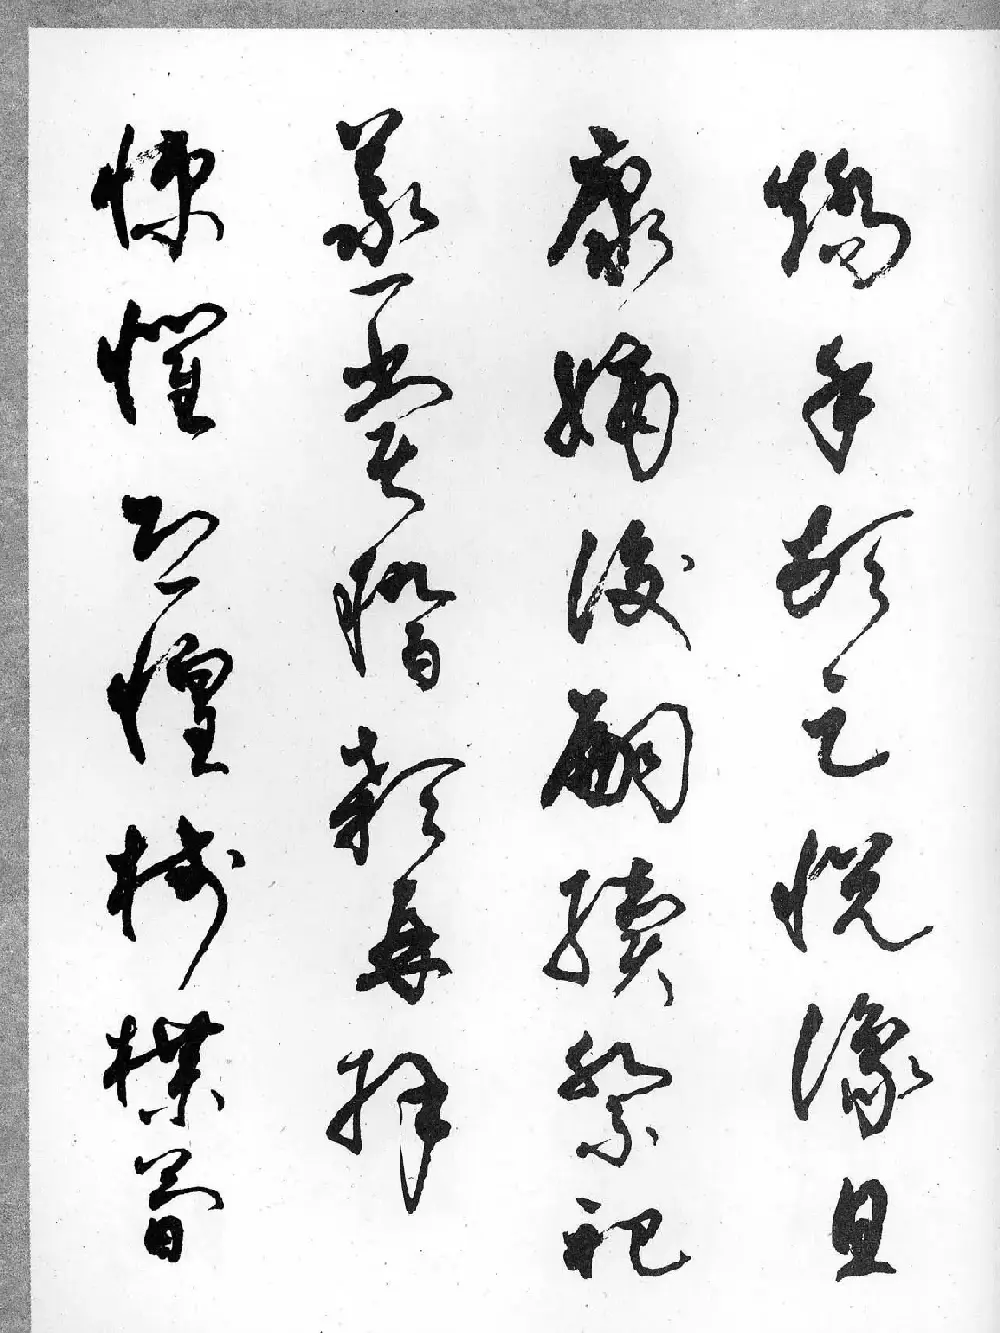 矯手頓足悅豫且
康嫡後嗣續祭祀
蒸嘗稽顙再拜
悚懼恐惶牋牒簡